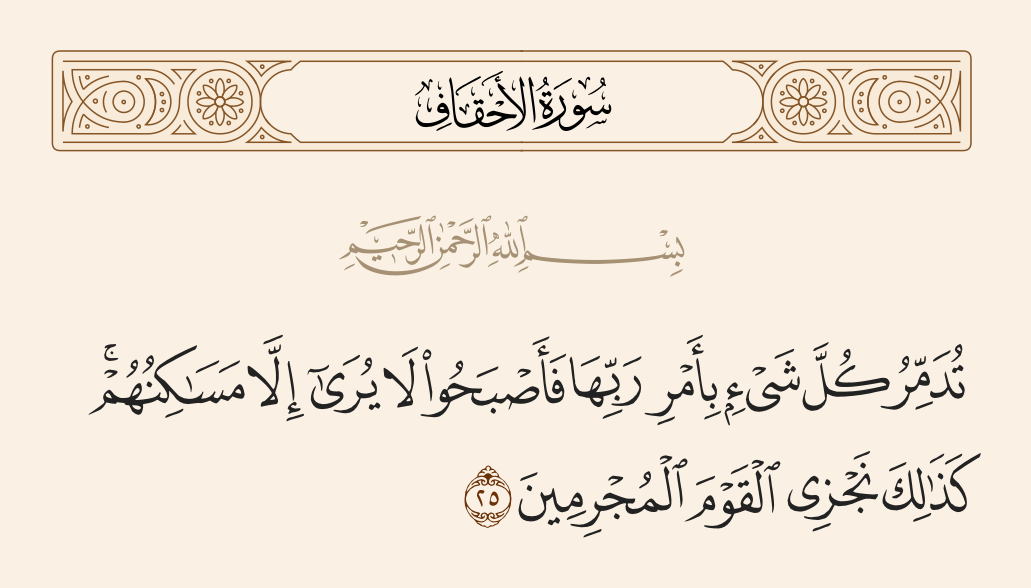 سُورَةُ الأَحْقَافِ
بِسْمِ ٱللَّهِ ٱلرَّحْمَٰنِ ٱلرَّحِيمِ
تُدَمِّرُ كُلَّ شَىْءٍۭ بِأَمْرِ رَبِّهَا فَأَصْبَحُوا۟ لَا يُرَىٰٓ إِلَّا مَسَـٰكِنُهُمْ ۚ
كَذَٰلِكَ نَجْزِى ٱلْقَوْمَ ٱلْمُجْرِمِينَ ٢٥